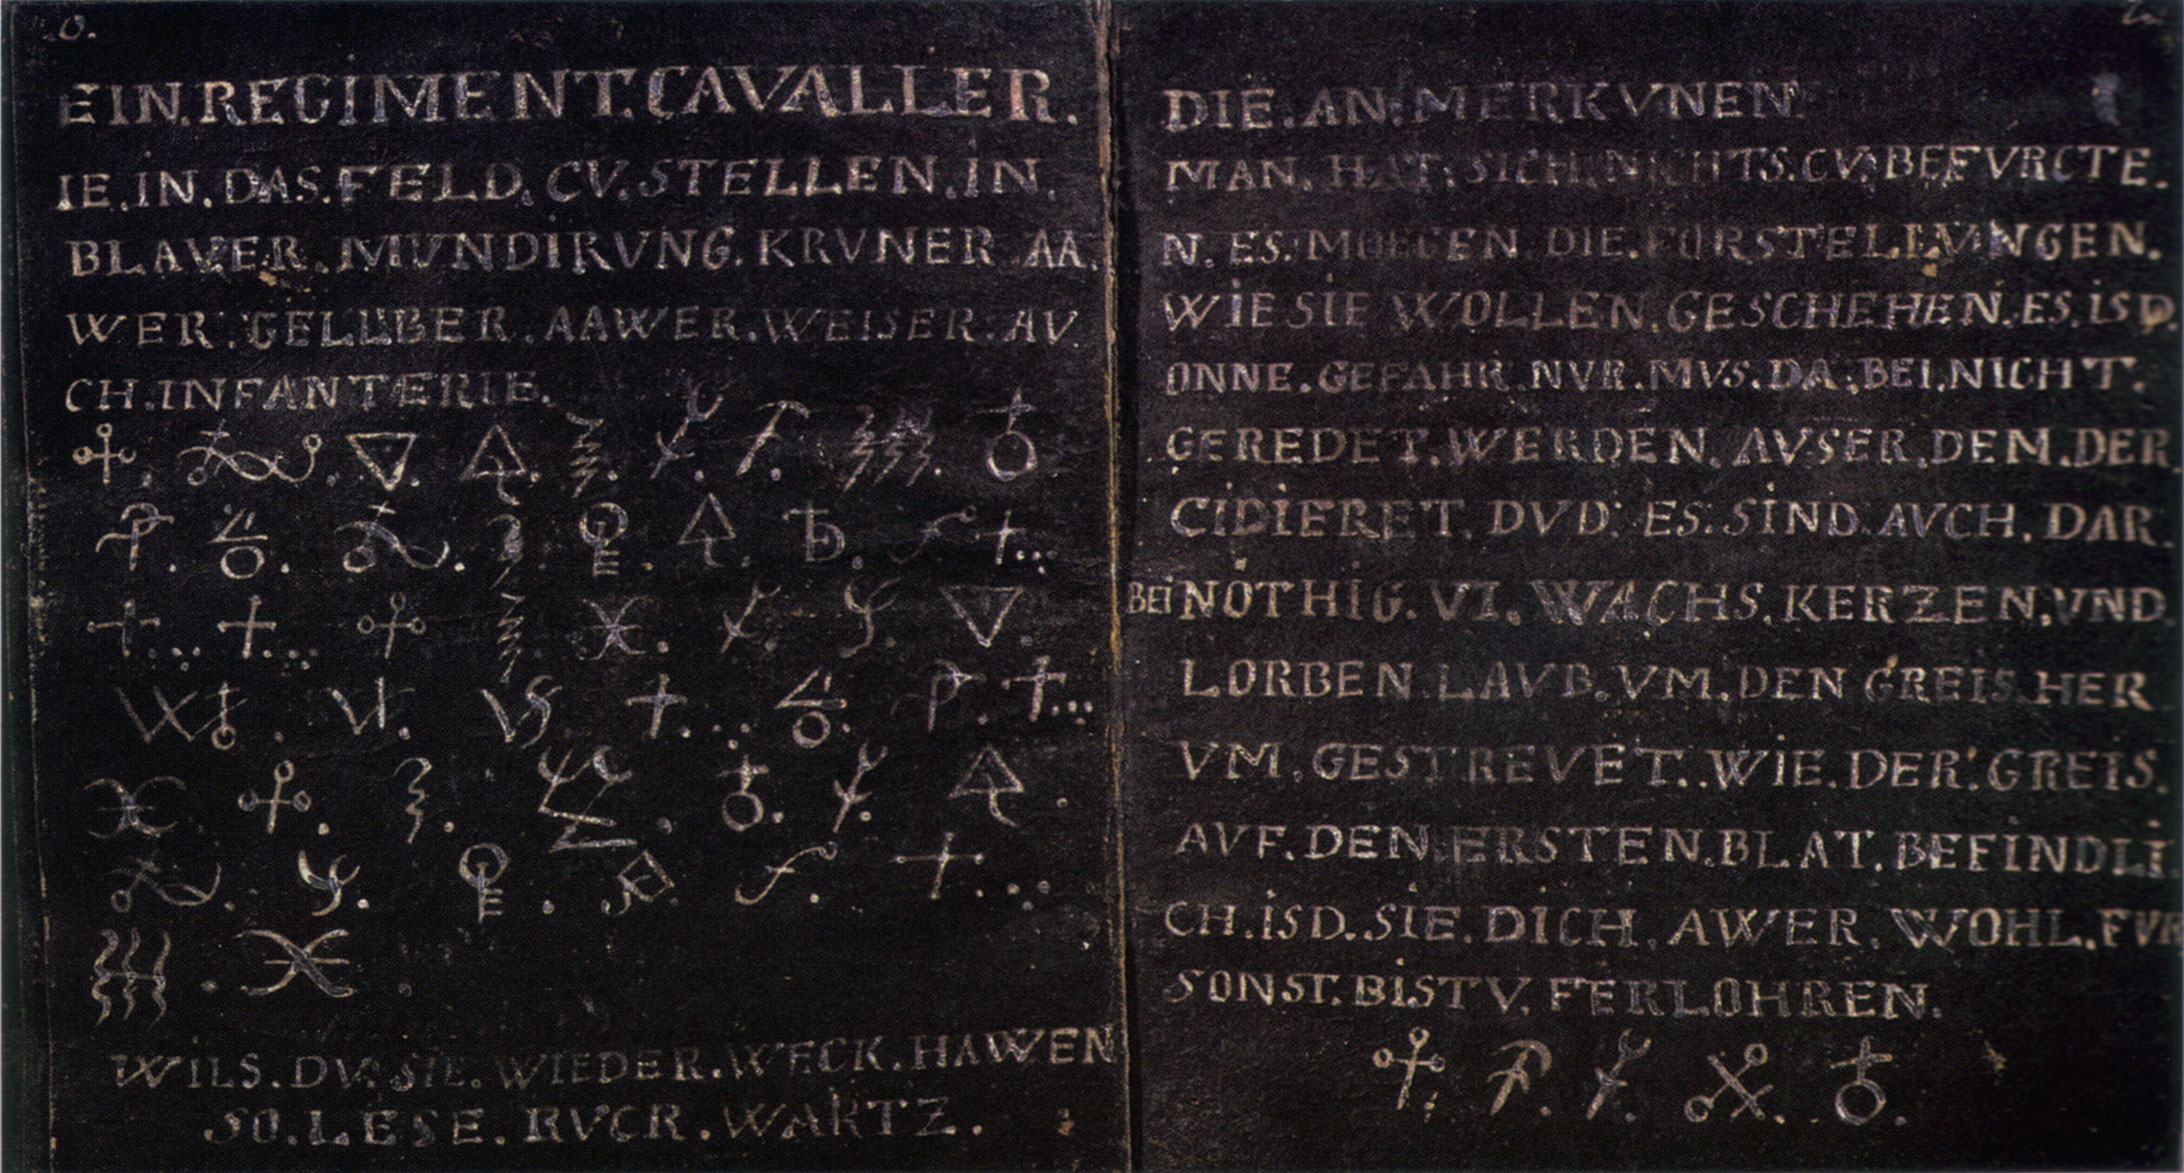 EIN.REGIMENT.CAVALLER.
IE.IN.DAS.FELD.CV.STELLEN.IN.
BLAVER.MVNDIRVNG.KRVNER.AA.
WER.GELLBER.AAWER.WEISER.AV.
CH.INFANTERIE.
WILS.DV.SIE.WIEDER.WECK.HAWEN
SO.LESE.RVCR.WARTZ.
DIE.AN.MERKVNEN
MAN.HAT.SICH.NICHTS.CV.BEFVRCTE.
N.ES.MOEGEN.DIE.FORSTELLVNGEN.
WIE SIE WOLLEN.GESCHEHEN.ES.ISD.
ONNE.GEFAHR.NVR.MVS.DA.BEI.NICHT.
GEREDET.WERDEN.AVSER.DEM.DER
CIDIERET.DVD.ES.SIND.AVCH.DAR.
BEI NOTHIG.VI.WACHS.KERZEN.VND
LORBEN LAVB.VM.DEN GREIS HER
VM.GESTREVET..WIE.DER.GREIS.
AVF.DEN.ERSTEN.BLAT.BEFINDLI
CH.ISD.SIE.DICH.AWER.WOHL.FVR
SONST.BISTV.FERLOHREN.